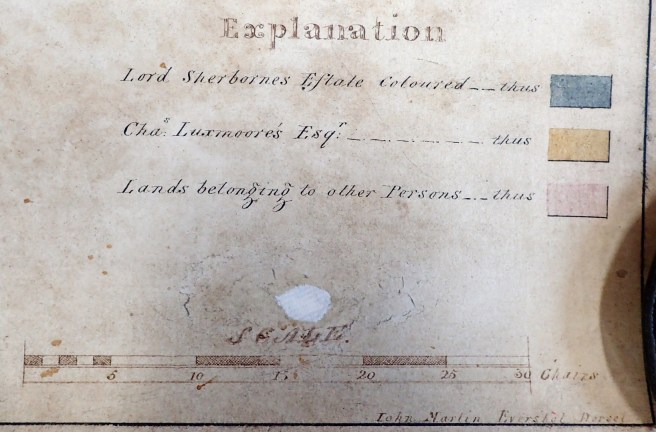 Explanation
Lord Sherbornes Eſtate Coloured _ _ thus
Chaˢ. Luxmoore's Esqʳ. _ . _ . _ . _ thus
Lands belonging to other Persons _ . _ thus
SCALE.
5 10 15 20 25 30 Chains
John Martin Evershot Dorset